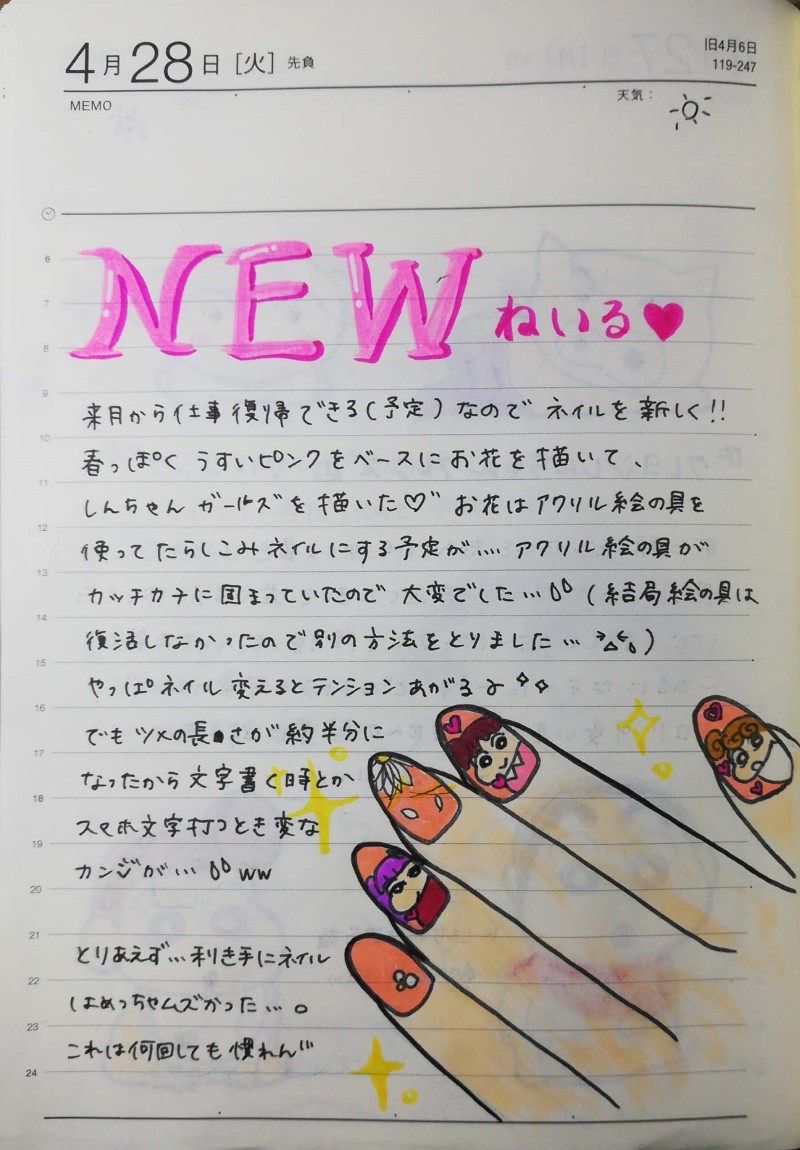 4月28日［火］先負
旧4月6日
119-247
MEMO
天気：
6
7
8
NEW ねいる♥
9
来月から仕事復帰できる(予定)なので ネイルを新しく!!
10
春っぽく うすいピンクをベースに お花を描いて、
11
しんちゃん ガールズを描いた♡゛ お花はアクリル絵の具を
12
使って たらしこみネイルにする予定が.... アクリル絵の具が
13
カッチカチに固まっていたので 大変でした…(結局絵の具は
14
復活しなかったので別の方法をとりました…)
15
やっぱネイル変えるとテンションあがる♪✧✧
16
でもツメの長さが約半分に
17
なったから文字書く時とか
18
スマホ文字打つとき変な
19
カンジが… ww
20
21
とりあえず…利き手にネイル
22
はめっちゃムズかった…。
23
これは何回しても慣れん
24